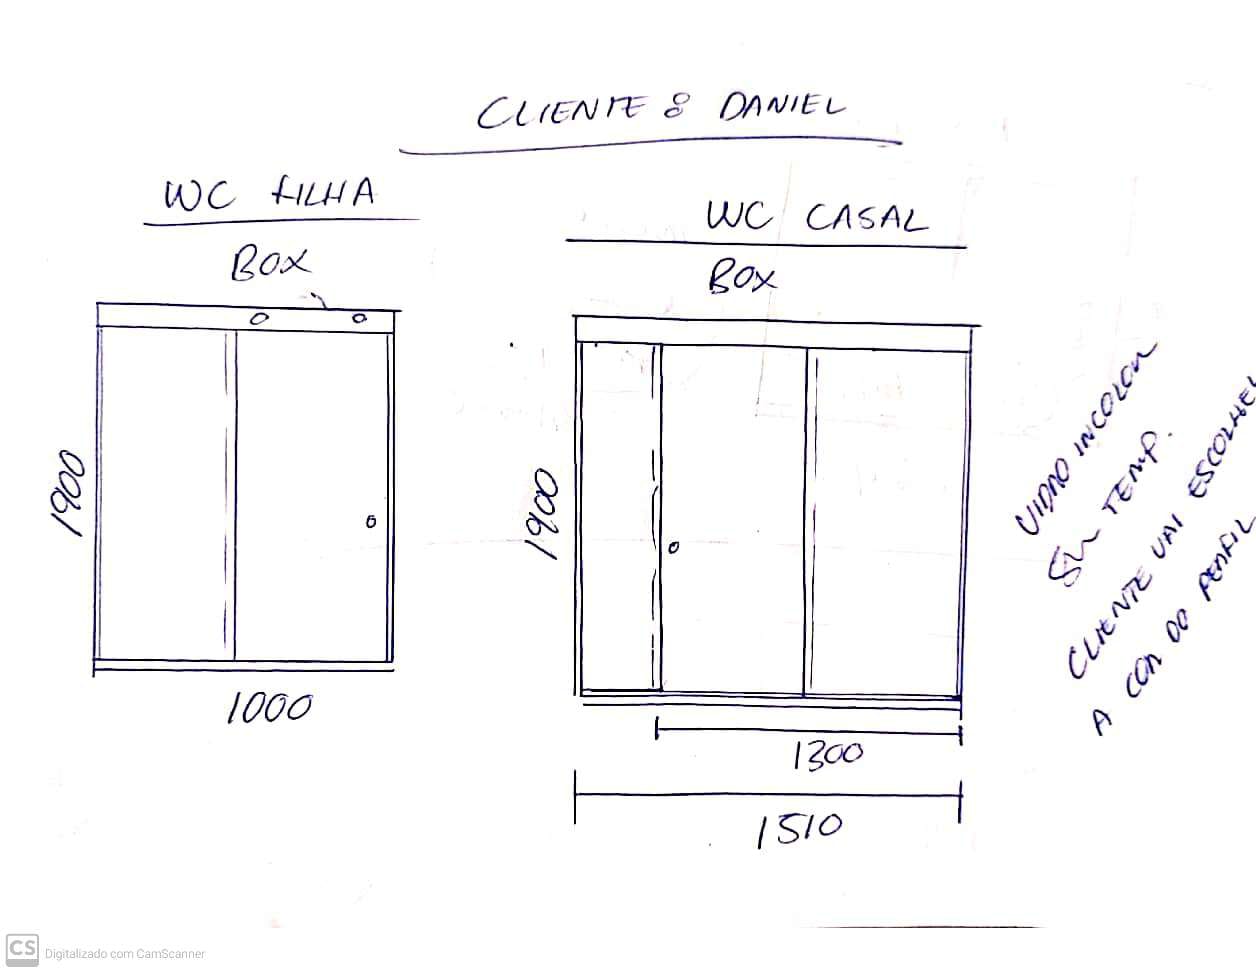 CLIENTE: DANIEL
WC FILHA
BOX
1900
1000
WC CASAL
BOX
1900
1300
1510
VIDRO INCOLOR
8M TEMP.
CLIENTE VAI ESCOLHER
A COR DO PERFIL
CS Digitalizado com CamScanner